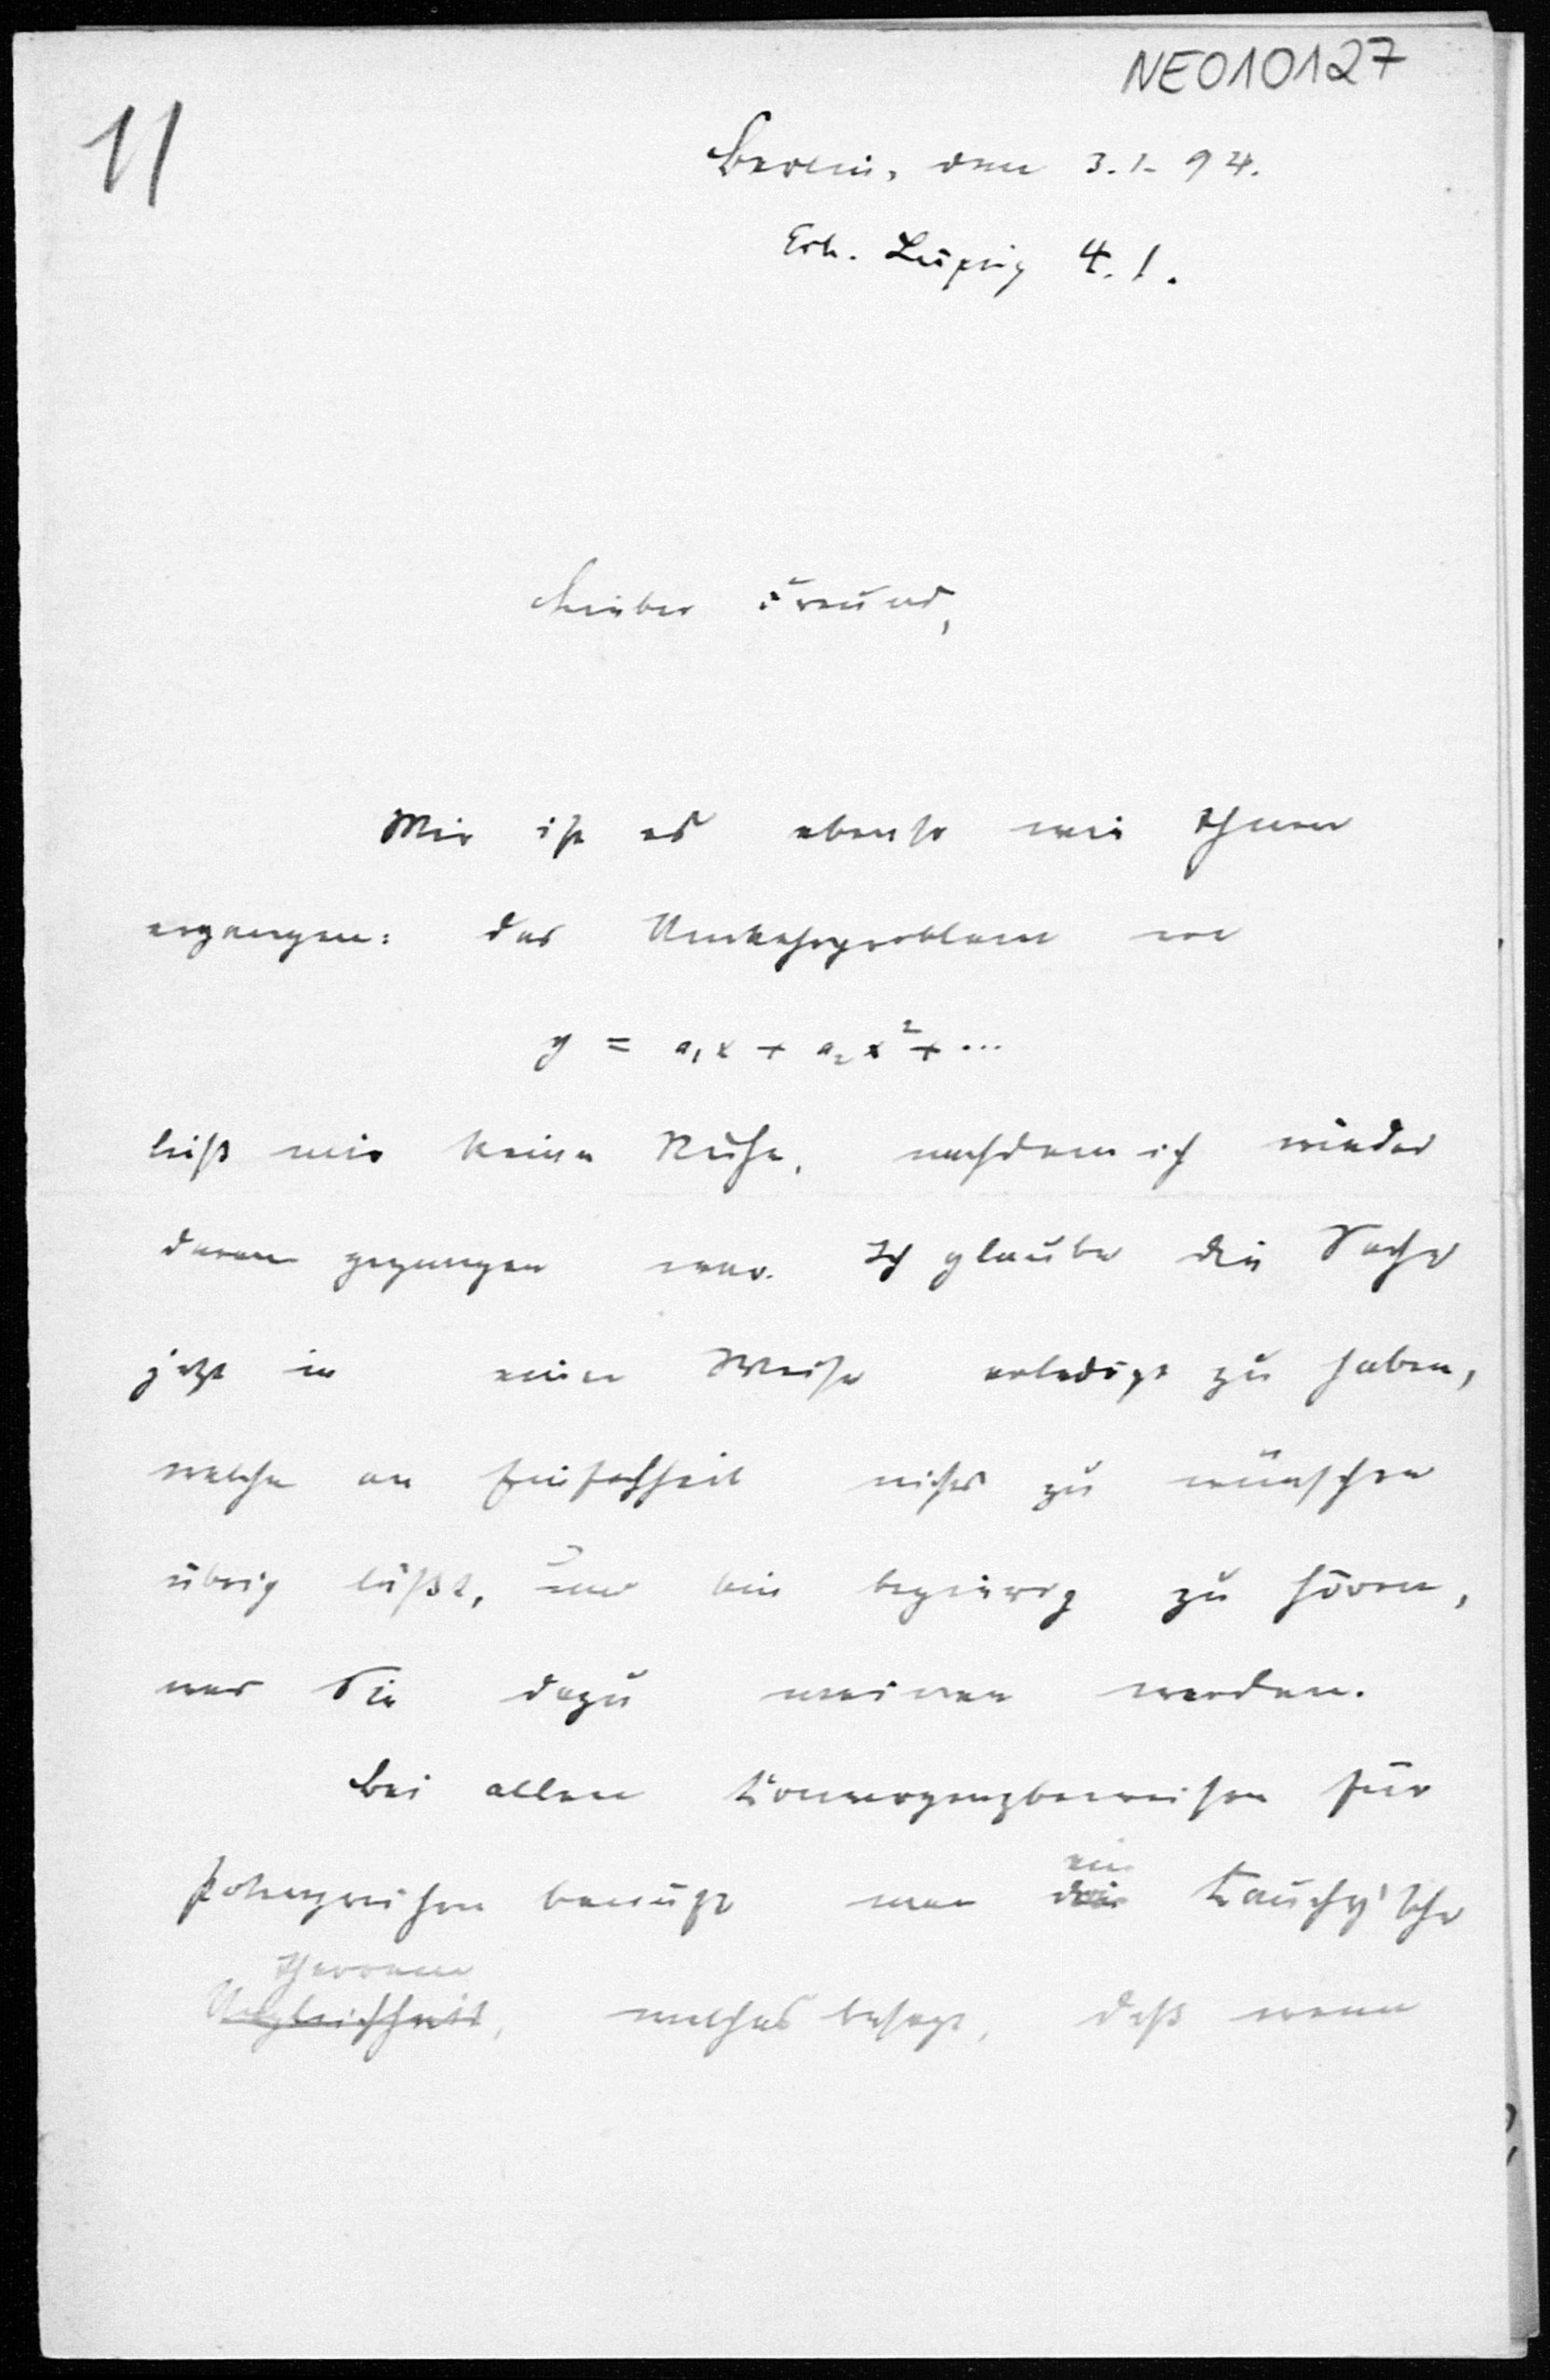 NE010127
11
Berlin, den 3.1.94.
Erh. Leipzig 4.1.
Lieber Freund,
Mir ist es ebenso wie Ihnen
ergangen: das Umkehrproblem von
y = a₁x + a₂x² + ...
ließ mir keine Ruhe, nachdem ich wieder
daran gegangen war. Ich glaube die Sache
jetzt in einer Weise erledigt zu haben,
welche an Einfachheit nichts zu wünschen
übrig läßt, und bin begierig zu hören,
was Sie dazu meinen werden.
Bei allen Convergenzbeweisen für
Potenzreihen benutzt man ein Cauchy'sche
Theorem
Ungleichheit, welches besagt, daß wenn